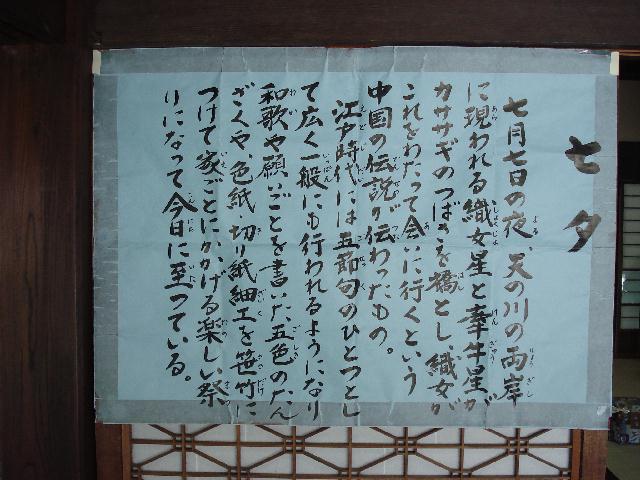 七夕
七月七日の夜、天の川の両岸
に現われる織女星と牽牛星が
カササギのつばさを橋とし、織女が
これをわたって会いに行くという
中国の伝説が伝わったもの。
江戸時代には五節句のひとつとし
て広く一般にも行われるようになり
和歌や願いごとを書いた五色のたん
ざくや色紙・切り紙細工を笹竹に
つけて家ごとにかかげる楽しい祭
りになって今日に至っている。